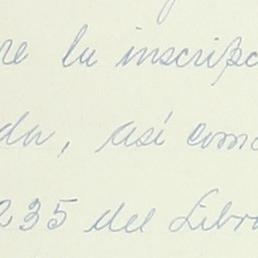 re la inscripc
da, así como
235 del Libro